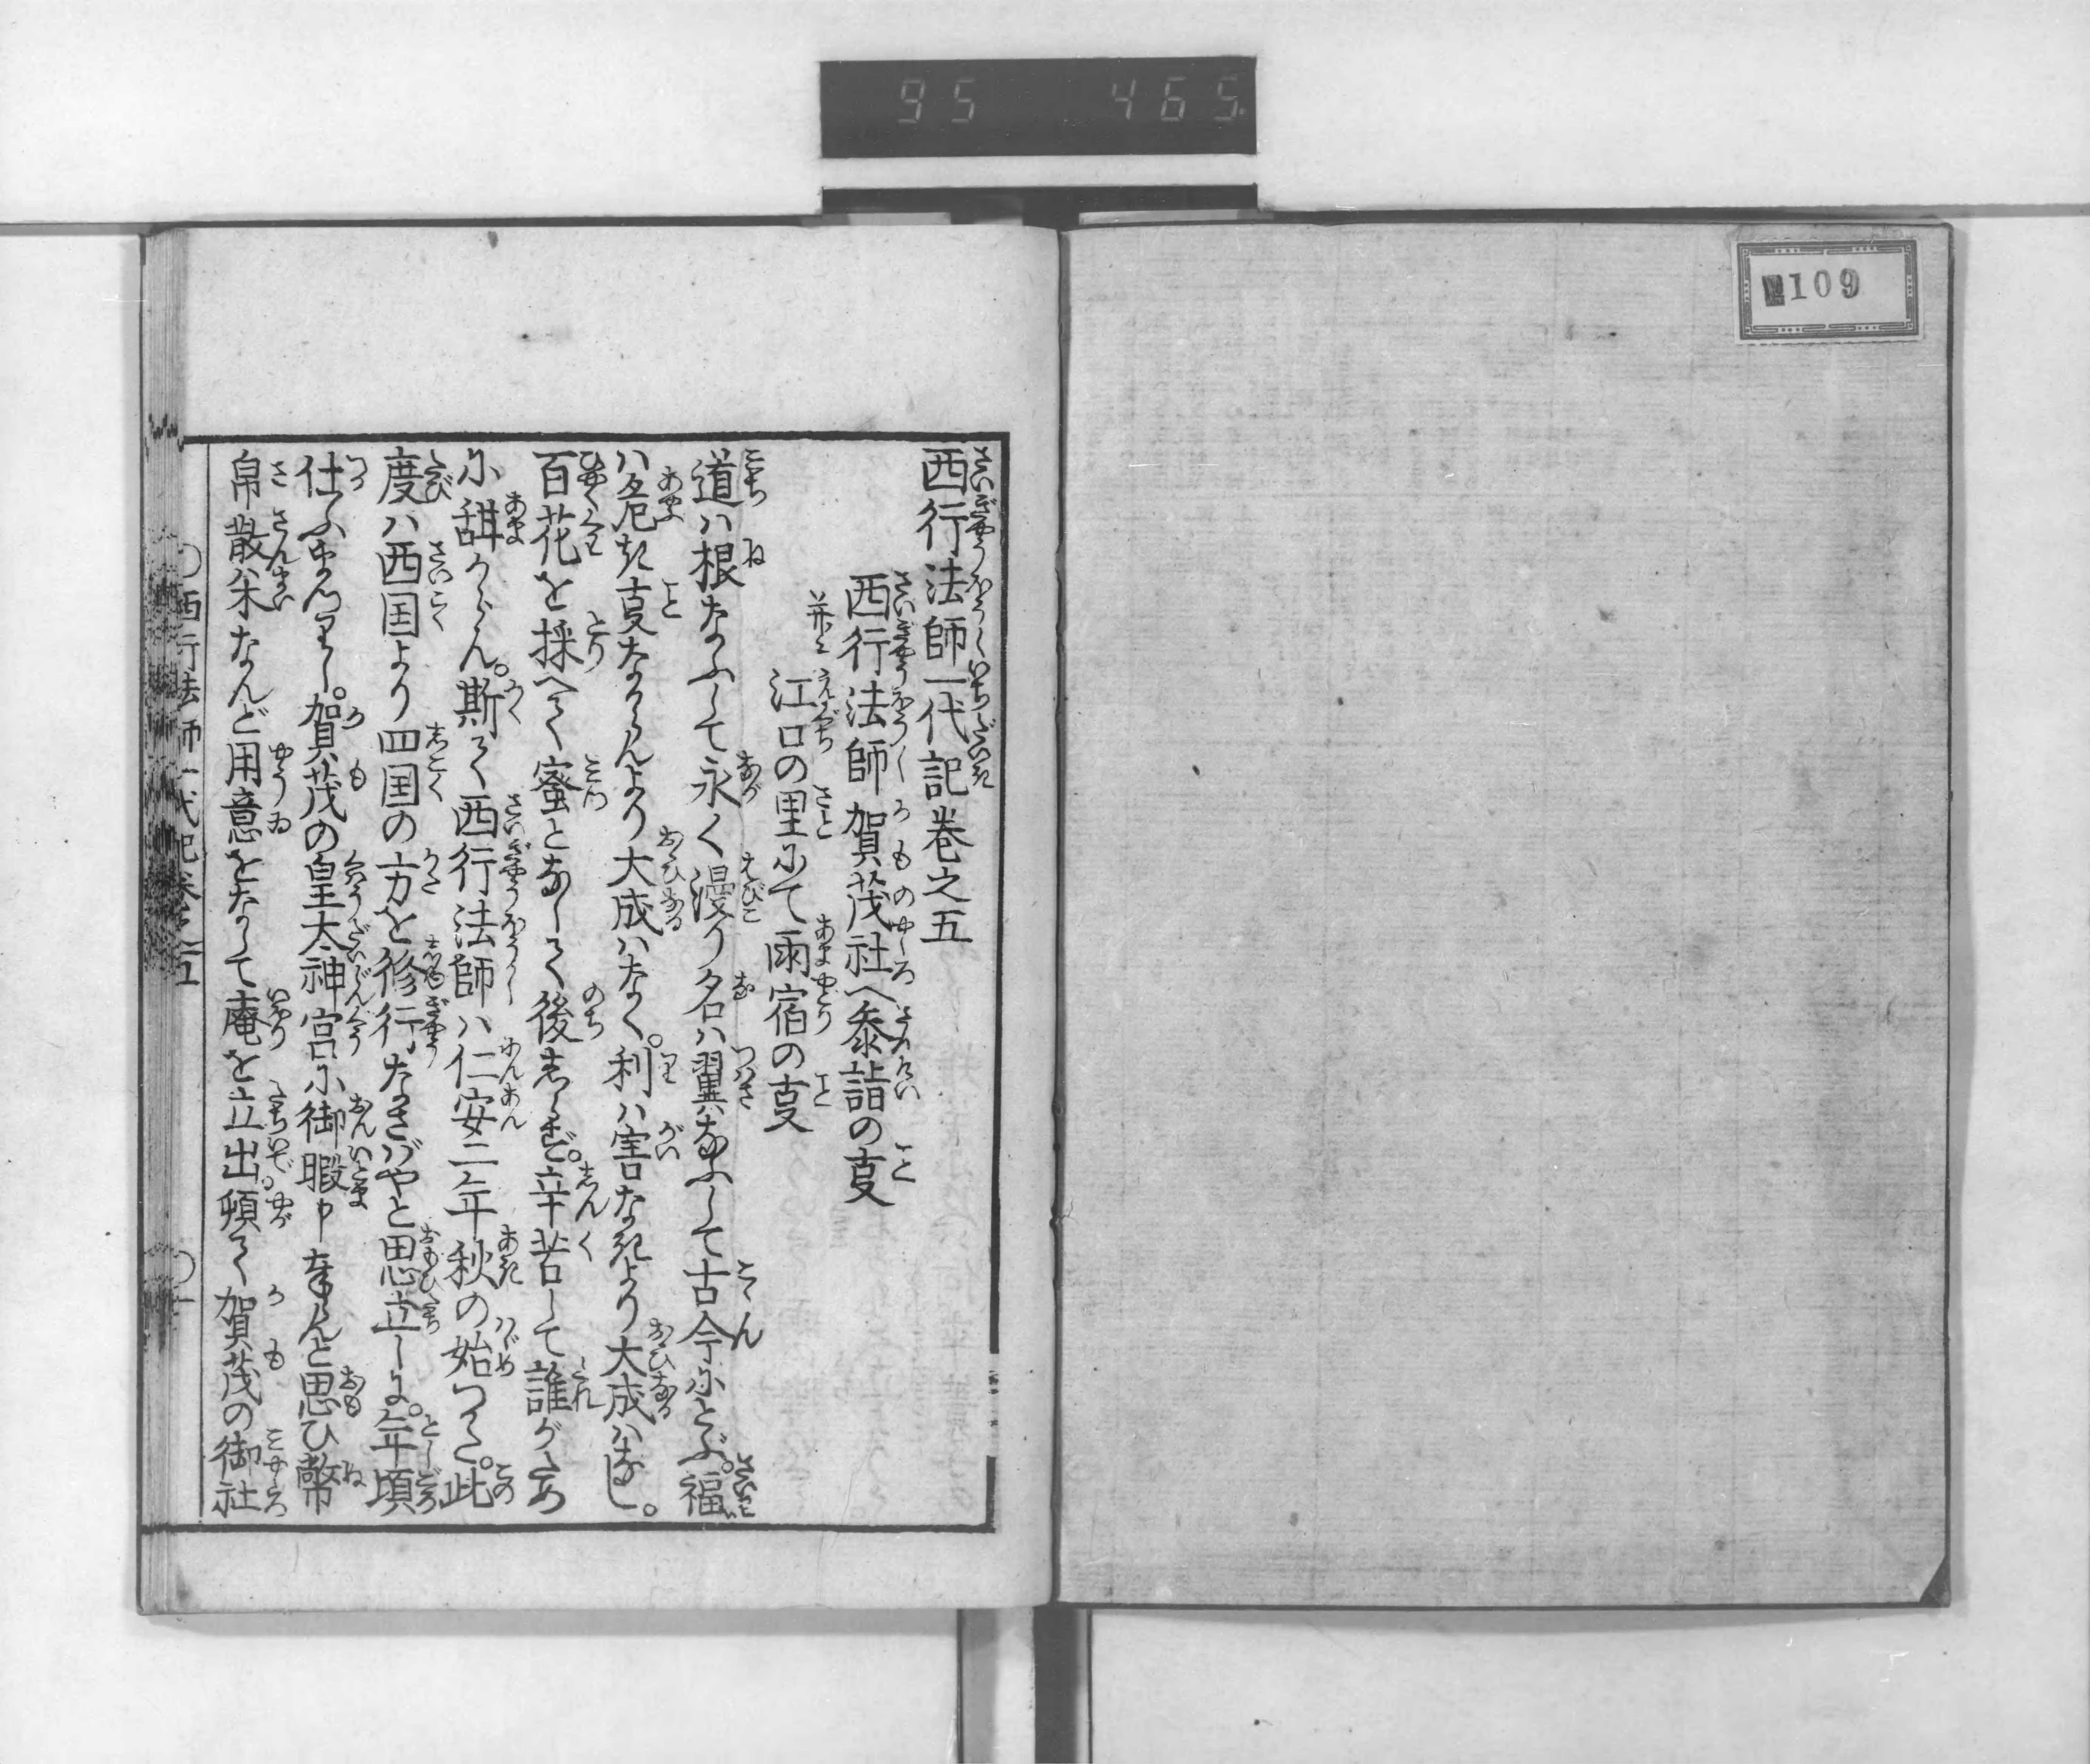 西行法師一代記巻之五
西行法師賀茂社へ参詣の叓
并ニ江口の里にて雨宿の叓
道ハ根なふして永く漫り名ハ翼なふして古今にとぶ。福
ハ危き叓なからんより大成ハなく。利ハ害なきより大成ハなし。
百花を採へて蜜となして後しらず。辛苦して誰がため
に甜からん。斯て西行法師ハ仁安二年秋の始つかた。此
度ハ西国より四国の方を修行なさばやと思立しに。年頃
仕ふまつりし。賀茂の皇太神宮に御暇申奉らんと思ひ幣
帛散米なんど用意をなして庵を立出。頓て賀茂の御社
西行法師一代記巻之五
109
95 465